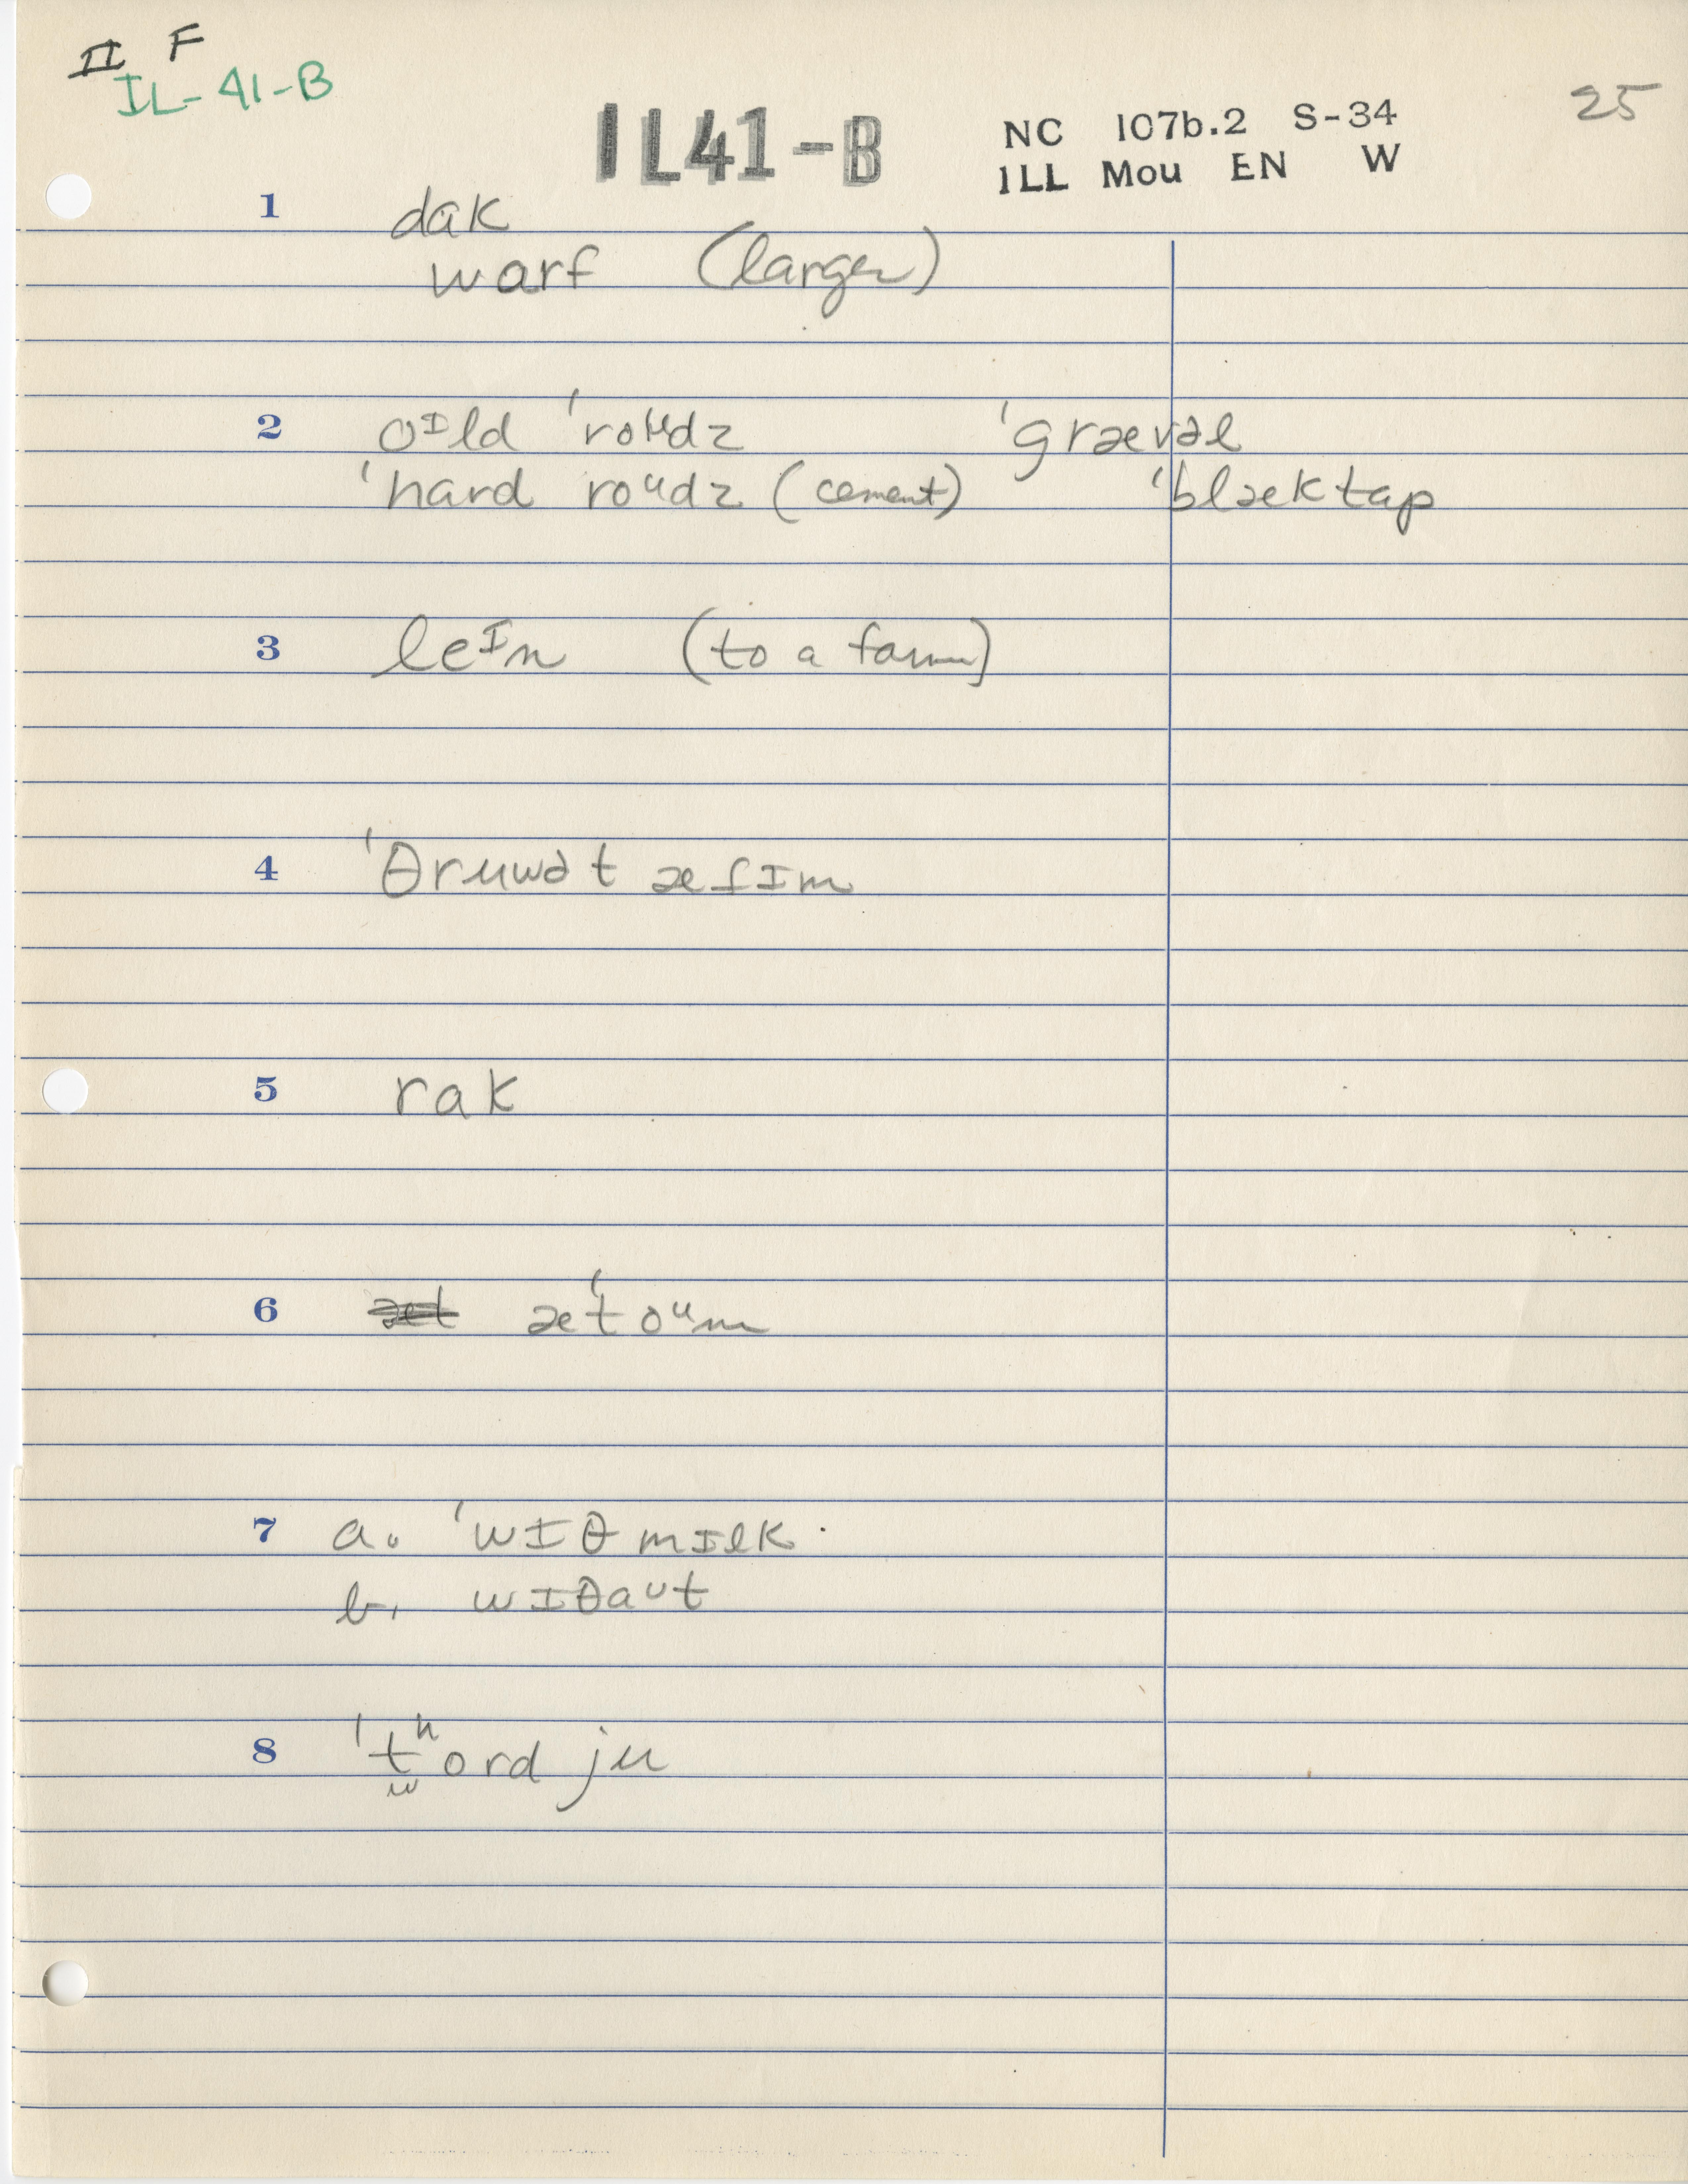 II F
IL-41-B
IL41-B
NC 107b.2 S-34
ILL Mou EN W
25
1 dak
warf (larger)
2 oᴵld ˈroᵘdz ˈgrævəl
ˈhard roᵘdz (cement) ˈblæktap
3 leᴵn (to a farm)
4 ˈθruwət æfɪm
5 rak
6 æˈtoᵘm
7 a. ˈwɪθmɪlk
b. wɪθaᴜt
8 ˈt̫ʰord ju